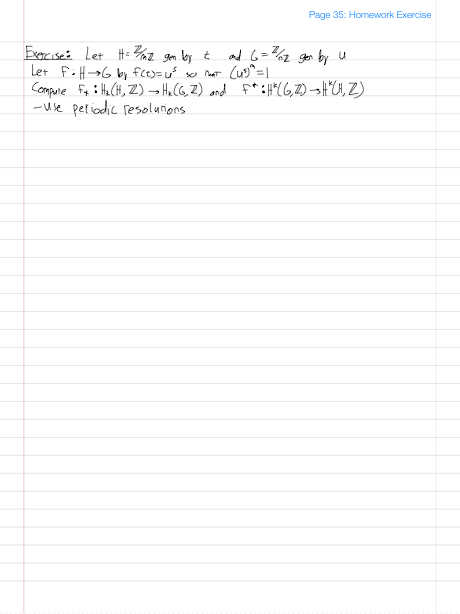 Page 35: Homework Exercise
Exercise: Let H = ℤ/mℤ gen by t and G = ℤ/nℤ gen by u
Let F: H → G by f(t) = u^s so that (u^s)^m = 1
Compute F_* : H_k(H, ℤ) → H_k(G, ℤ) and F^* : H^k(G, ℤ) → H^k(H, ℤ)
- Use periodic resolutions